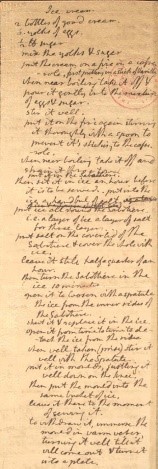 Ice cream.
2 bottles of good cream.
6 yolks of eggs.
1/2 lb sugar
mix the yolks & sugar
put the cream on a fire in a casse-
role, first putting in a stick of vanilla
when near boiling take it off &
pour it gently into the mixture
of eggs & sugar.
stir it well.
put it on the fire again stirring
it thoroughly with a spoon to
prevent it's sticking to the casse-
role.
when near boiling take it off and
strain it thro' a towel.
put it in the Sabottiere
then set it in ice an hour before
it is to be served. put into the
ice a handful of salt.
put ice all round the Sabottiere
i.e. a layer of ice a layer of salt
for three layers.
put salt on the coverlid of the
Sabottiere & cover the whole with
ice.
leave it still half a quarter of an
hour.
then turn the Sabottiere in the
ice 10 minutes
open it to loosen with a spatula
the ice from the inner sides of
the Sabottiere.
shut it & replace it in the ice.
open it from time to time to de-
tach the ice from the sides
when well taken (prise) stir it
well with the Spatula.
put it in moulds, justling it
well down on the knee.
then put the mould into the
same bucket of ice.
leave it there to the moment
of serving it.
to withdraw it, immerse the
mould in warm water,
turning it well till it
will come out & turn it
into a plate.